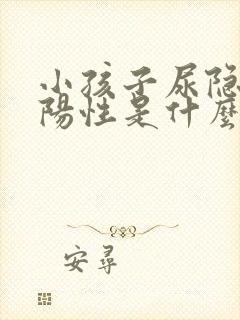 小孩子尿隐
陽性是什麼
安尋